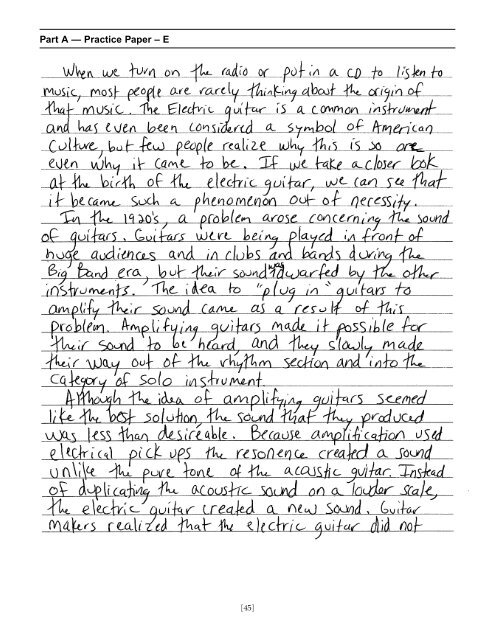 Part A — Practice Paper – E
When we turn on the radio or put in a CD to listen to
music, most people are rarely thinking about the origin of
that music. The Electric guitar is a common instrument
and has even been considered a symbol of American
Culture, but few people realize why this is so or
even why it came to be. If we take a closer look
at the birth of the electric guitar, we can see that
it became such a phenomenon out of necessity.
In the 1920's, a problem arose concerning the sound
of guitars. Guitars were being played in front of
huge audiences and in clubs and bands during the
Big Band era, but their sound was dwarfed by the other
instruments. The idea to "plug in" guitars to
amplify their sound came as a result of this
problem. Amplifying guitars made it possible for
their sound to be heard, and they slowly made
their way out of the rhythm section and into the
category of solo instrument.
Although the idea of amplifying guitars seemed
like the best solution, the sound that they produced
was less than desireable. Because amplification used
electrical pick ups the resonence created a sound
unlike the pure tone of the acoustic guitar. Instead
of duplicating the acoustic sound on a louder scale,
the electric guitar created a new sound. Guitar
makers realized that the electric guitar did not
[45]